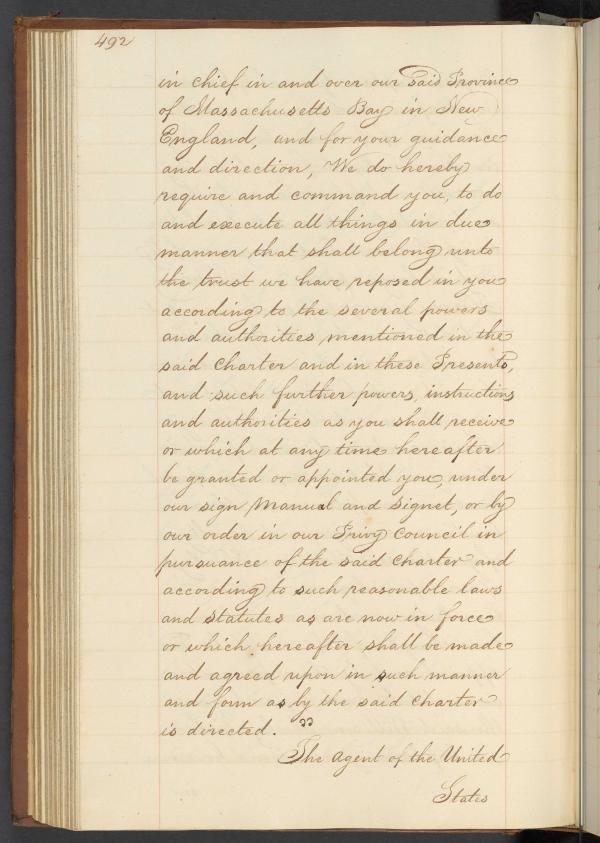 492
in chief in and over our said Province
of Massachusetts Bay in New
England, and for your guidance
and direction, We do hereby
require and command you, to do
and execute all things in due
manner that shall belong unto
the trust we have reposed in you
according to the several powers
and authorities mentioned in the
said Charter and in these Presents,
and such further powers, instructions
and authorities as you shall receive
or which at any time hereafter
be granted or appointed you, under
our sign Manual and Signet, or by
our order in our Privy Council in
pursuance of the said Charter and
according to such reasonable laws
and statutes as are now in force
or which hereafter shall be made
and agreed upon in such manner
and form as by the said Charter
is directed. "
The Agent of the United
States